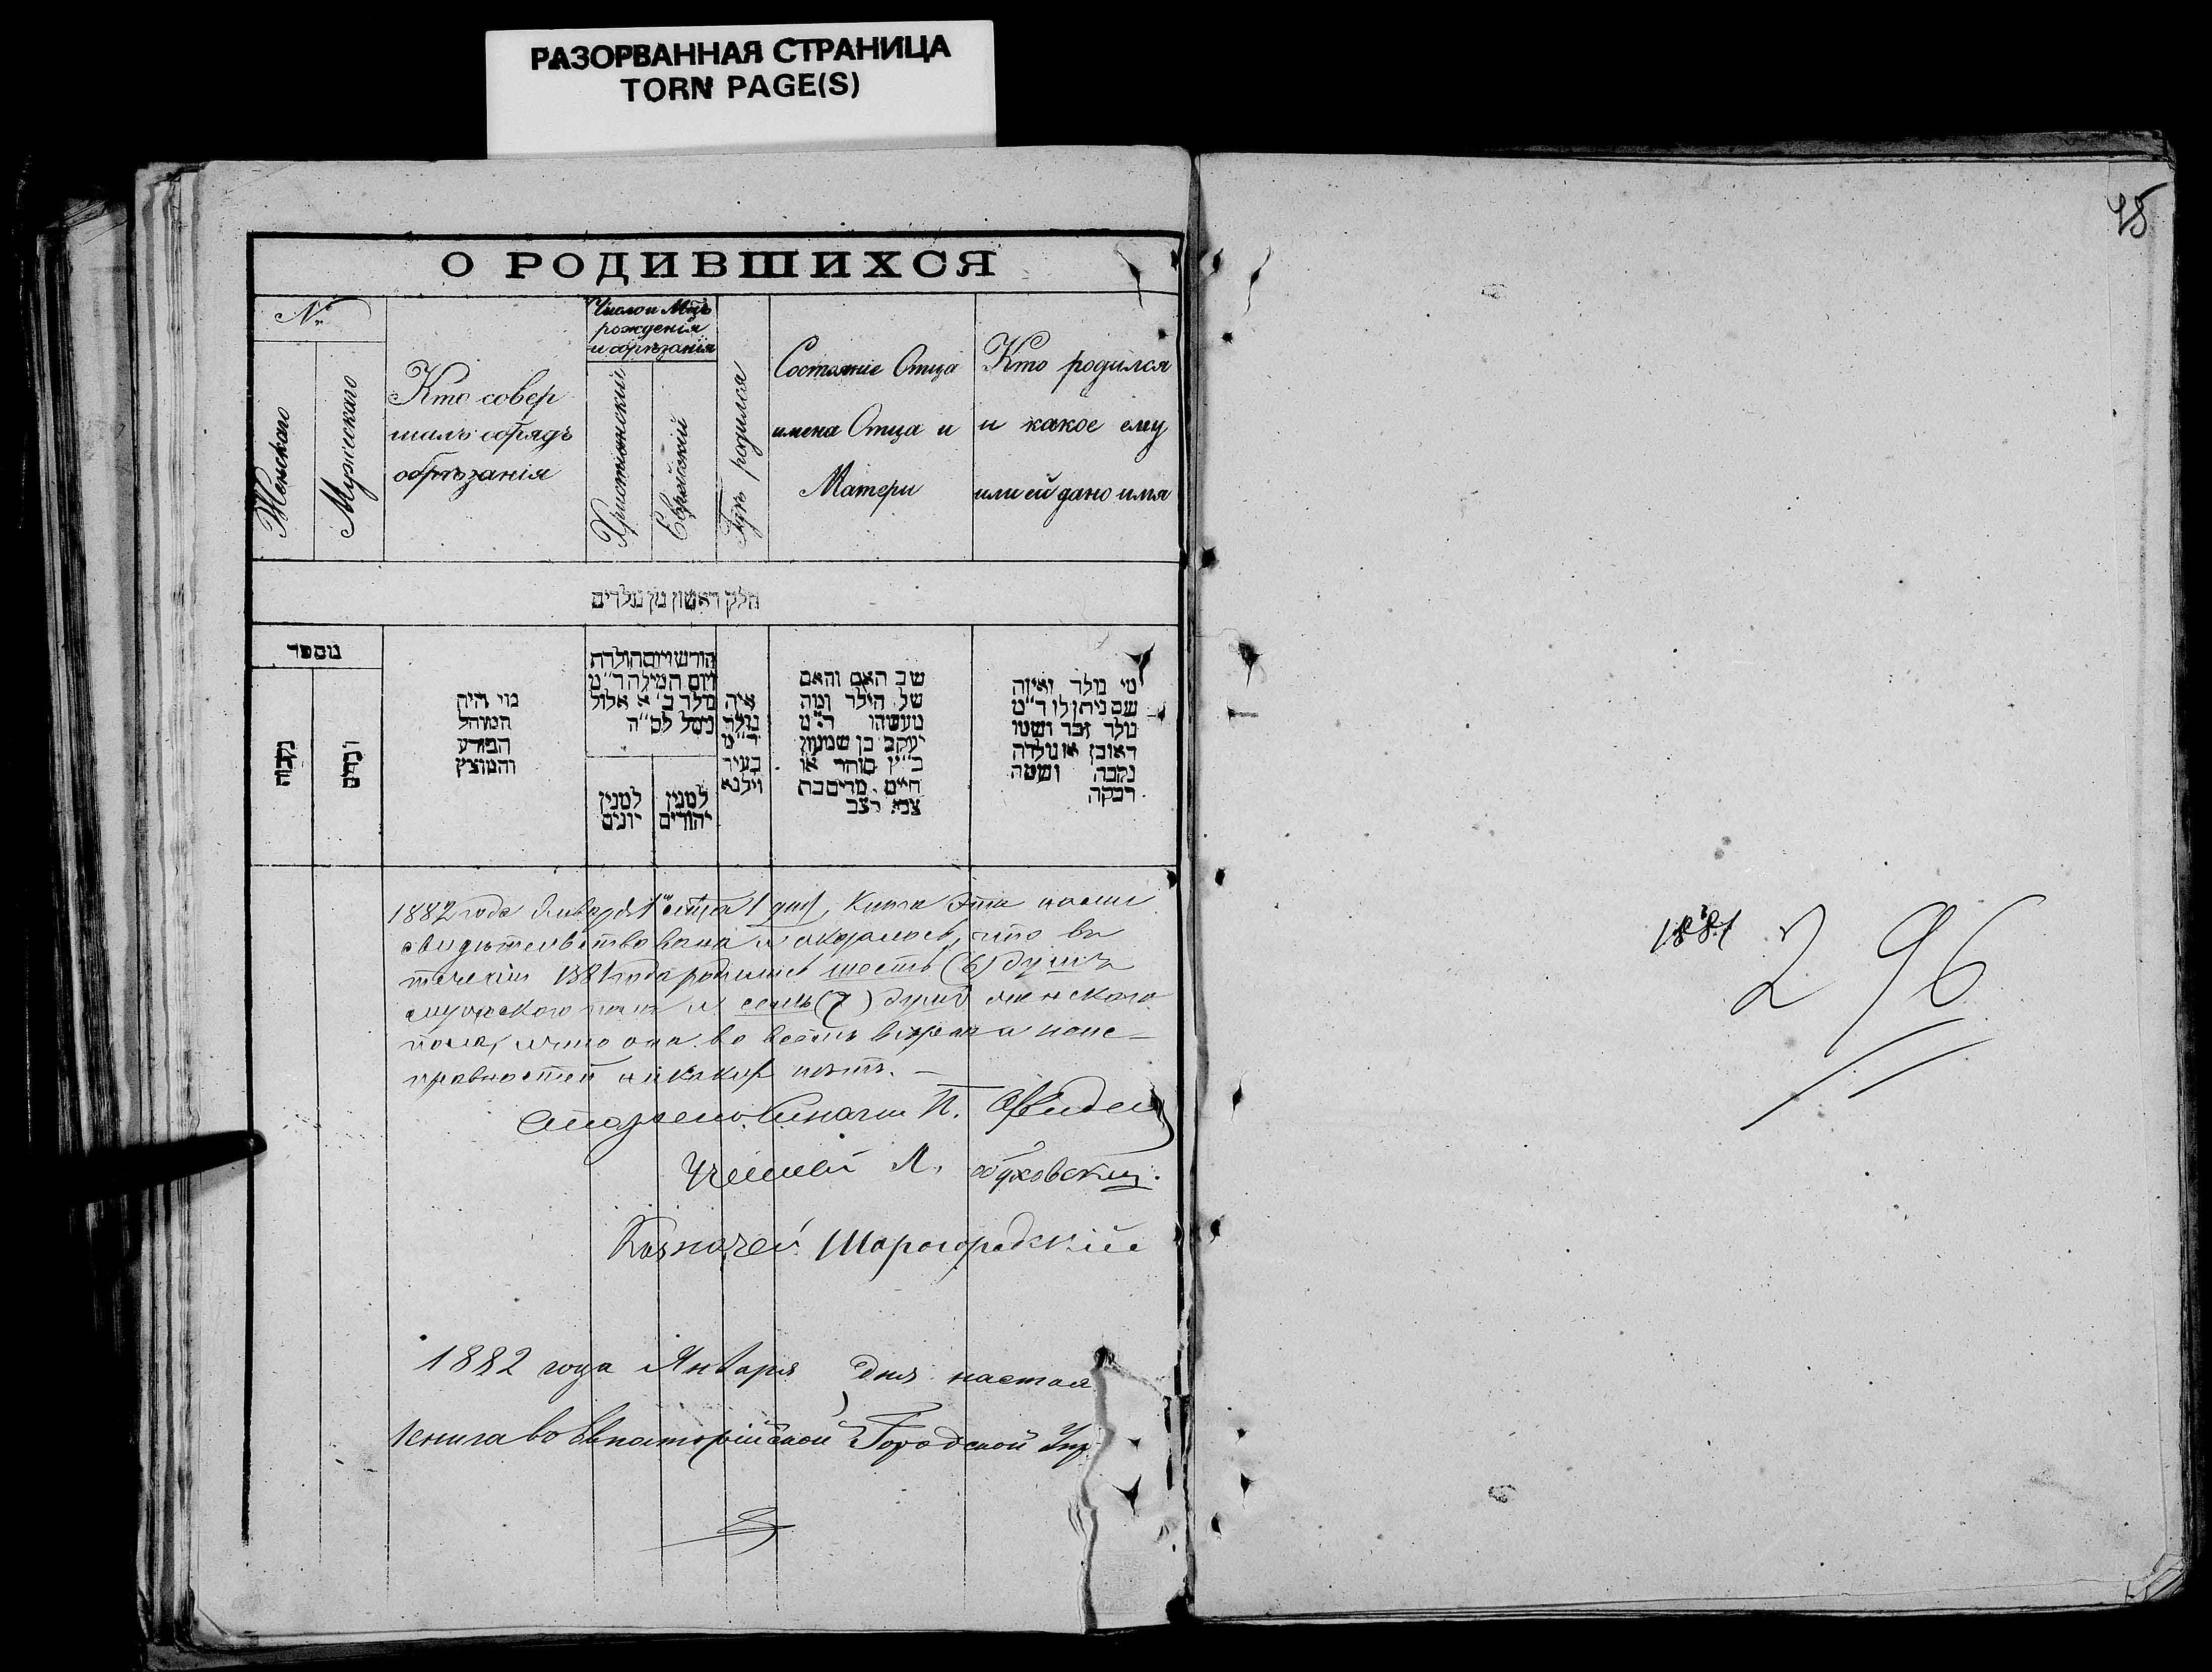 РАЗОРВАННАЯ СТРАНИЦА
TORN PAGE(S)
О РОДИВШИХСЯ
№
Женскаго
Мужескаго
Кто совер
шалъ обрядъ
обрѣзанія
Число и Мѣц
рожденія
и обрѣзанія
Христіянскій
Еврейскій
Гдѣ родился
Состояніе Отца
имена Отца и
Матери
Кто родился
и какое ему
или ей дано имя
חלק ראשון מן נולדים
מספר
נקבות
זכרים
מי היה
המוהל
הפורע
והמוצץ
חודש ויום הולדת
ויום המילה ד"מ
נולד ב' א אלול
נמל לס"ה
למנין
יונים
למנין
יהודים
איה
נולד
ד"מ
בעיר
וילנא
שב האב והאם
של הילד ומה
מעשיהו ד"מ
יעקב בן שמעון
כ"ץ סוחר או
חיים. מרים בת
צבא רצב
מי נולד ואיזה
שם ניתן לו ד"מ
נולד זכר ושמו
ראובן או נולדה
נקבה ושמה
רבקה
1882 года Января 1 дня, Книга эта нами
свидѣтельствована и оказалось, что въ
теченіи 1881 года родилось шесть (6) душъ
мужескаго пола и семь (7) душъ женскаго
пола, и что она во всемъ вѣрна и неис-
правностей никакихъ нѣтъ. —
П.
Ученый Л. Обуховскій.
Казначей Шарогородскій
1882 года Января дня настоя
книга во Евпаторійской Городской Упр
45
1881
296